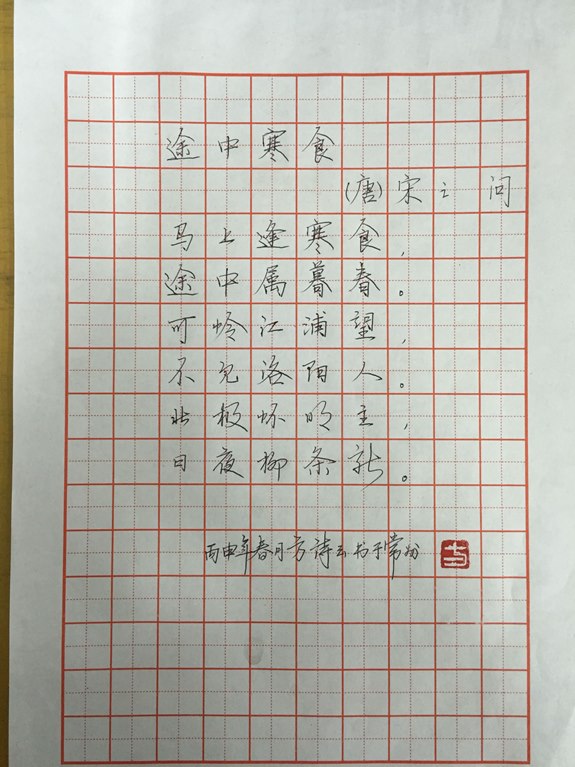 途中寒食
(唐)宋之问
马上逢寒食,
途中属暮春。
可怜江浦望,
不见洛阳人。
北极怀明主,
日夜柳条新。
丙申年春月方诗云书于常州